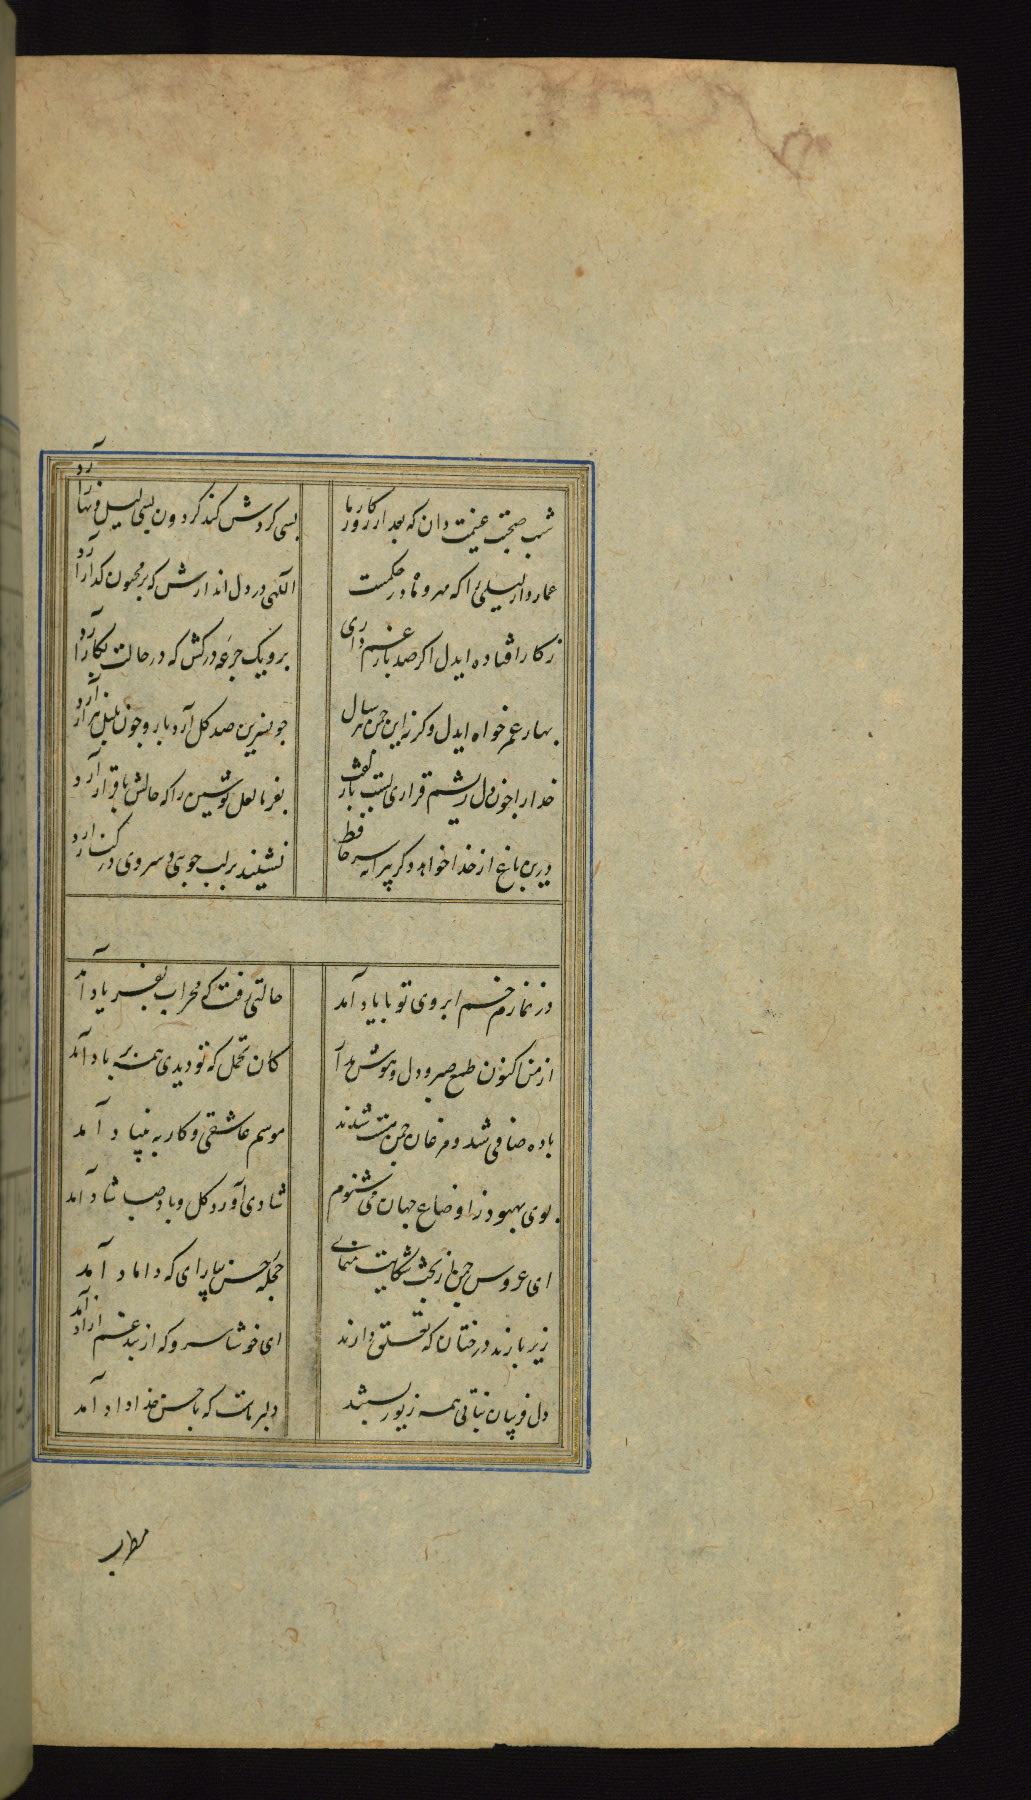 شب صحبت غنیمت دان که بعد از روزکار ما بسی کردش کند کردون بسی لیل و نهار آرد
عمار دار لیلی را که مهر و ماه در حکمست الهی در دل اندازش که بر مجنون گذار آرد
ز کار افتاده ایدل اکر صد بار غم داری برو یک جرعه درکش که در حالت بکار آرد
بهار عمر خواه ایدل وکر نه این چمن هر سال چو نسرین صد کل آرد بار و چون بلبل هزار آرد
خدا را چون دل ریشم قراری بست با زلفت بفرما لعل نوشین را که حالش با قرار آرد
درین باغ از خدا خواهد دکر پیرانه سر حافظ نشیند بر لب جویی و سروی در کنار آرد
در نمازم خم ابروی تو با یاد آمد حالتی رفت که محراب بفریاد آمد
از من اکنون طمع صبر و دل و هوش مدار کان تحمل که تو دیدی همه بر باد آمد
باده صافی شد و مرغان چمن مست شدند موسم عاشقی و کار به بنیاد آمد
بوی بهبود ز اوضاع جهان می شنوم شادی آورد کل و باد صبا شاد آمد
ای عروس چمن از بخت شکایت منمای حجله حسن بیارای که داماد آمد
زیر بارند درختان که تعلق دارند ای خوشا سرو که از بند غم آزاد آمد
دل فریبان نباتی همه زیور بستند دلبر ماست که با حسن خداداد آمد
مطرب